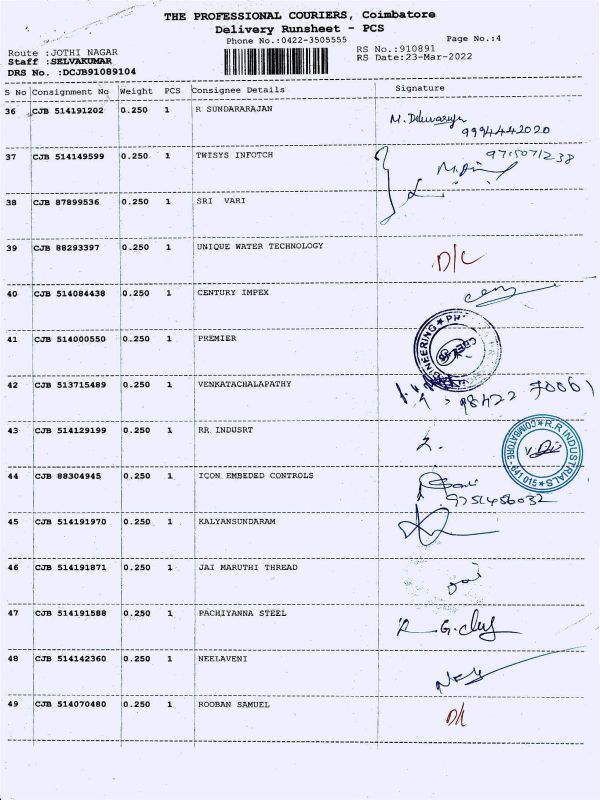 THE PROFESSIONAL COURIERS, Coimbatore
Delivery Runsheet - PCS
Phone No.:0422-3505555 Page No.:4
Route :JOTHI NAGAR RS No.:910891
Staff :SELVAKUMAR RS Date:23-Mar-2022
DRS No. :DCJB91089104
S No Consignment No Weight PCS Consignee Details Signature
36 CJB 514191202 0.250 1 R SUNDARARAJAN
9994442020
37 CJB 514149599 0.250 1 TWISYS INFOTCH
38 CJB 87899536 0.250 1 SRI VARI
39 CJB 88293397 0.250 1 UNIQUE WATER TECHNOLOGY D/L
40 CJB 514084438 0.250 1 CENTURY IMPEX
41 CJB 514000550 0.250 1 PREMIER
42 CJB 513715489 0.250 1 VENKATACHALAPATHY
98422 70061
43 CJB 514129199 0.250 1 RR INDUSRT
R.R INDUSTRIALS COIMBATORE - 641 015
44 CJB 88304945 0.250 1 ICON EMBEDED CONTROLS
9751456032
45 CJB 514191970 0.250 1 KALYANSUNDARAM
46 CJB 514191871 0.250 1 JAI MARUTHI THREAD
47 CJB 514191588 0.250 1 PACHIYANNA STEEL
48 CJB 514142360 0.250 1 NEELAVENI
49 CJB 514070480 0.250 1 ROOBAN SAMUEL D/L